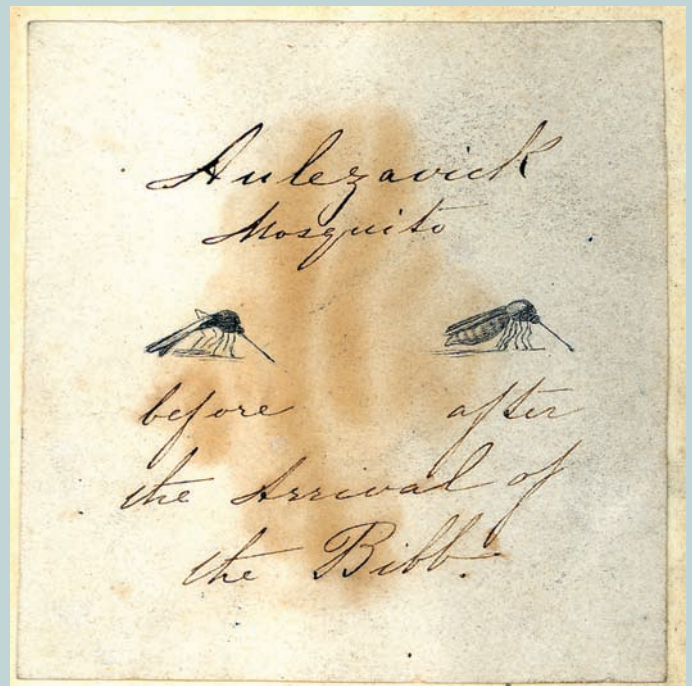 Aulezavick
Mosquito
before after
the Arrival of
the Bibb.